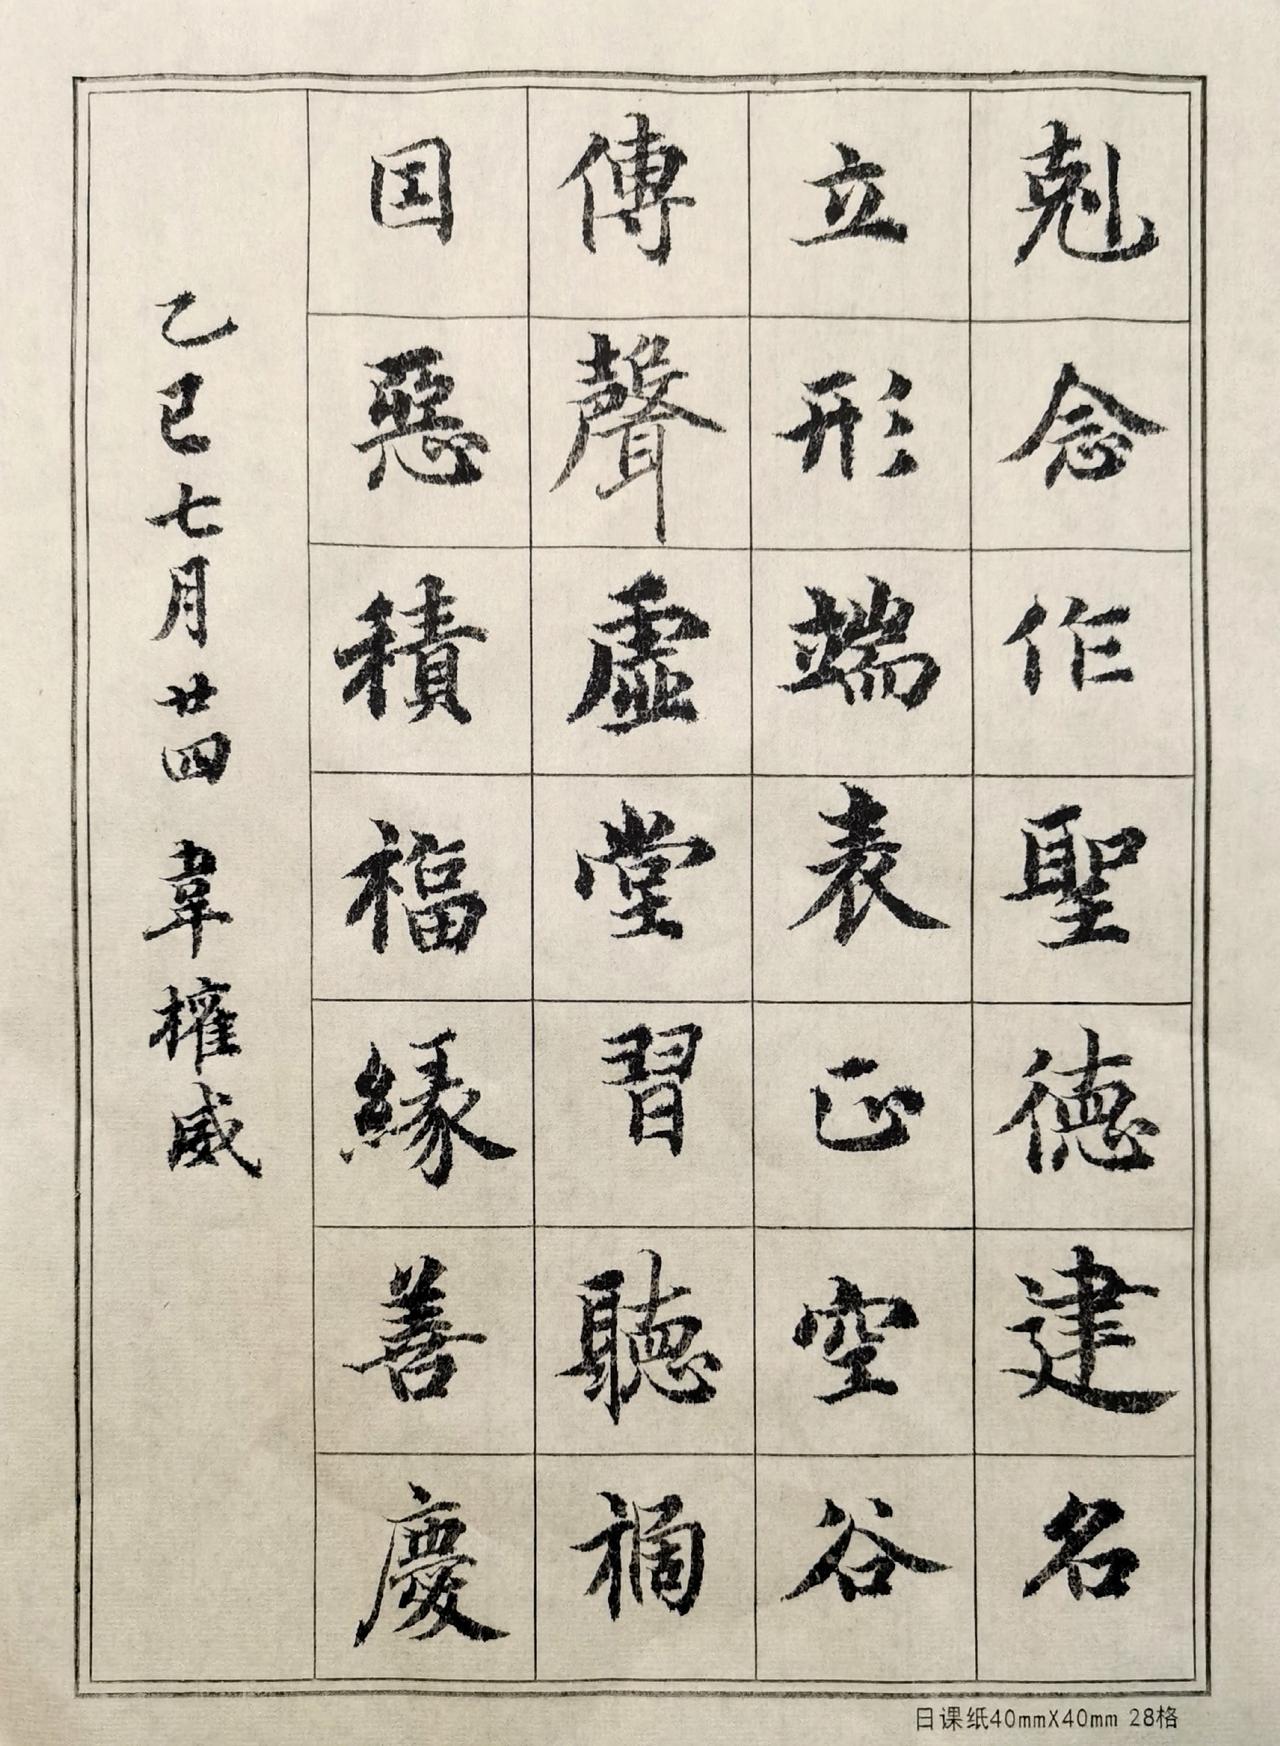 剋念作聖德建名
立形端表正空谷
傳聲虛堂習聽禍
因惡積福緣善慶
乙巳七月廿四 韋權威
日课纸40mmX40mm 28格